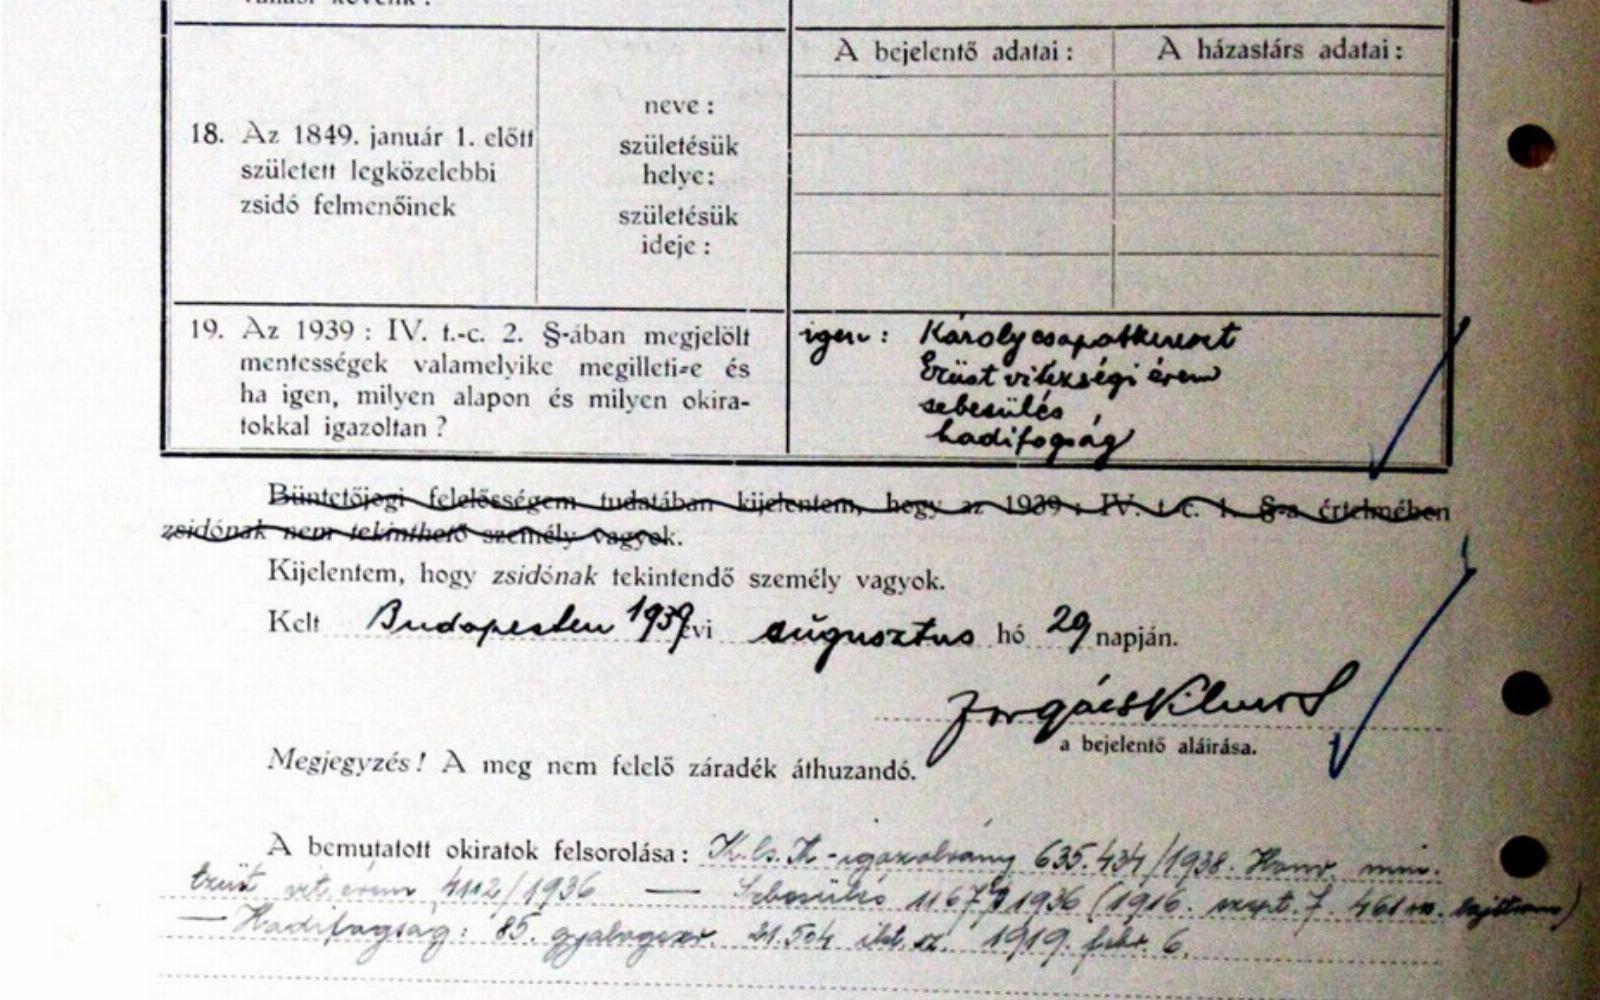 A bejelentő adatai : A házastárs adatai :
18. Az 1849. január 1. előtt
született legközelebbi
zsidó felmenőinek
neve :
születésük
helye :
születésük
ideje :
19. Az 1939 : IV. t.-c. 2. §-ában megjelölt
mentességek valamelyike megilleti-e és
ha igen, milyen alapon és milyen okira-
tokkal igazoltan ?
igen : Károly csapatkereszt
Ezüst vitézségi érem
sebesülés
hadifogság
Büntetőjogi felelősségem tudatában kijelentem, hogy az 1939 : IV. t.-c. 1. §-a értelmében
zsidónak nem tekinthető személy vagyok.
Kijelentem, hogy zsidónak tekintendő személy vagyok.
Kelt Budapesten 1939 évi augusztus hó 29 napján.
Forgács Vilmos
a bejelentő aláírása.
Megjegyzés ! A meg nem felelő záradék áthuzandó.
A bemutatott okiratok felsorolása : K.cs.K-igazolvány 635.434/1938. Honv. min.
Ezüst vit. érem 4112/1936 — Sebesülés 1936 (1916. szept. 7. 461
— Hadifogság : 85. gyalogezr. 21.504 ikt. sz. 1919. febr. 6.